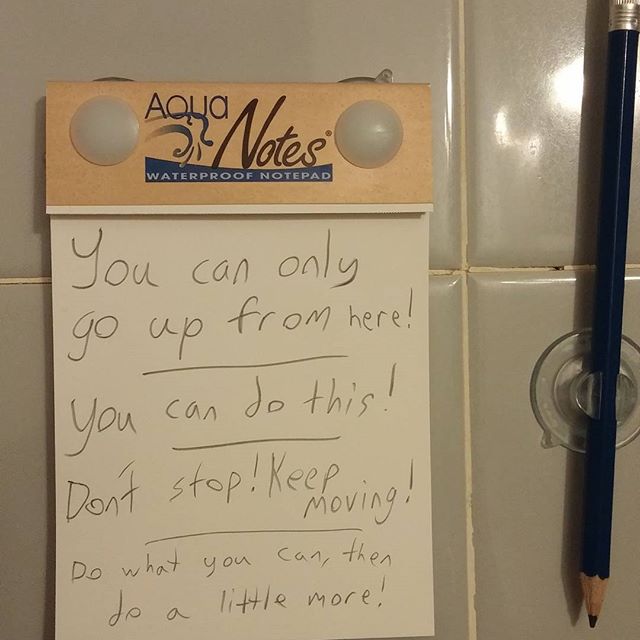 Aqua
Notes®
WATERPROOF NOTEPAD
You can only
go up from here!
You can do this!
Don't stop! Keep
moving!
Do what you can, then
do a little more!